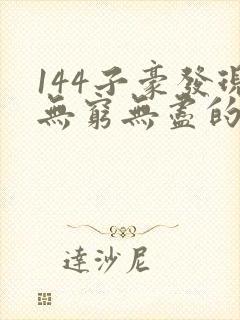 144子豪發現
無窮無盡的
達沙尼